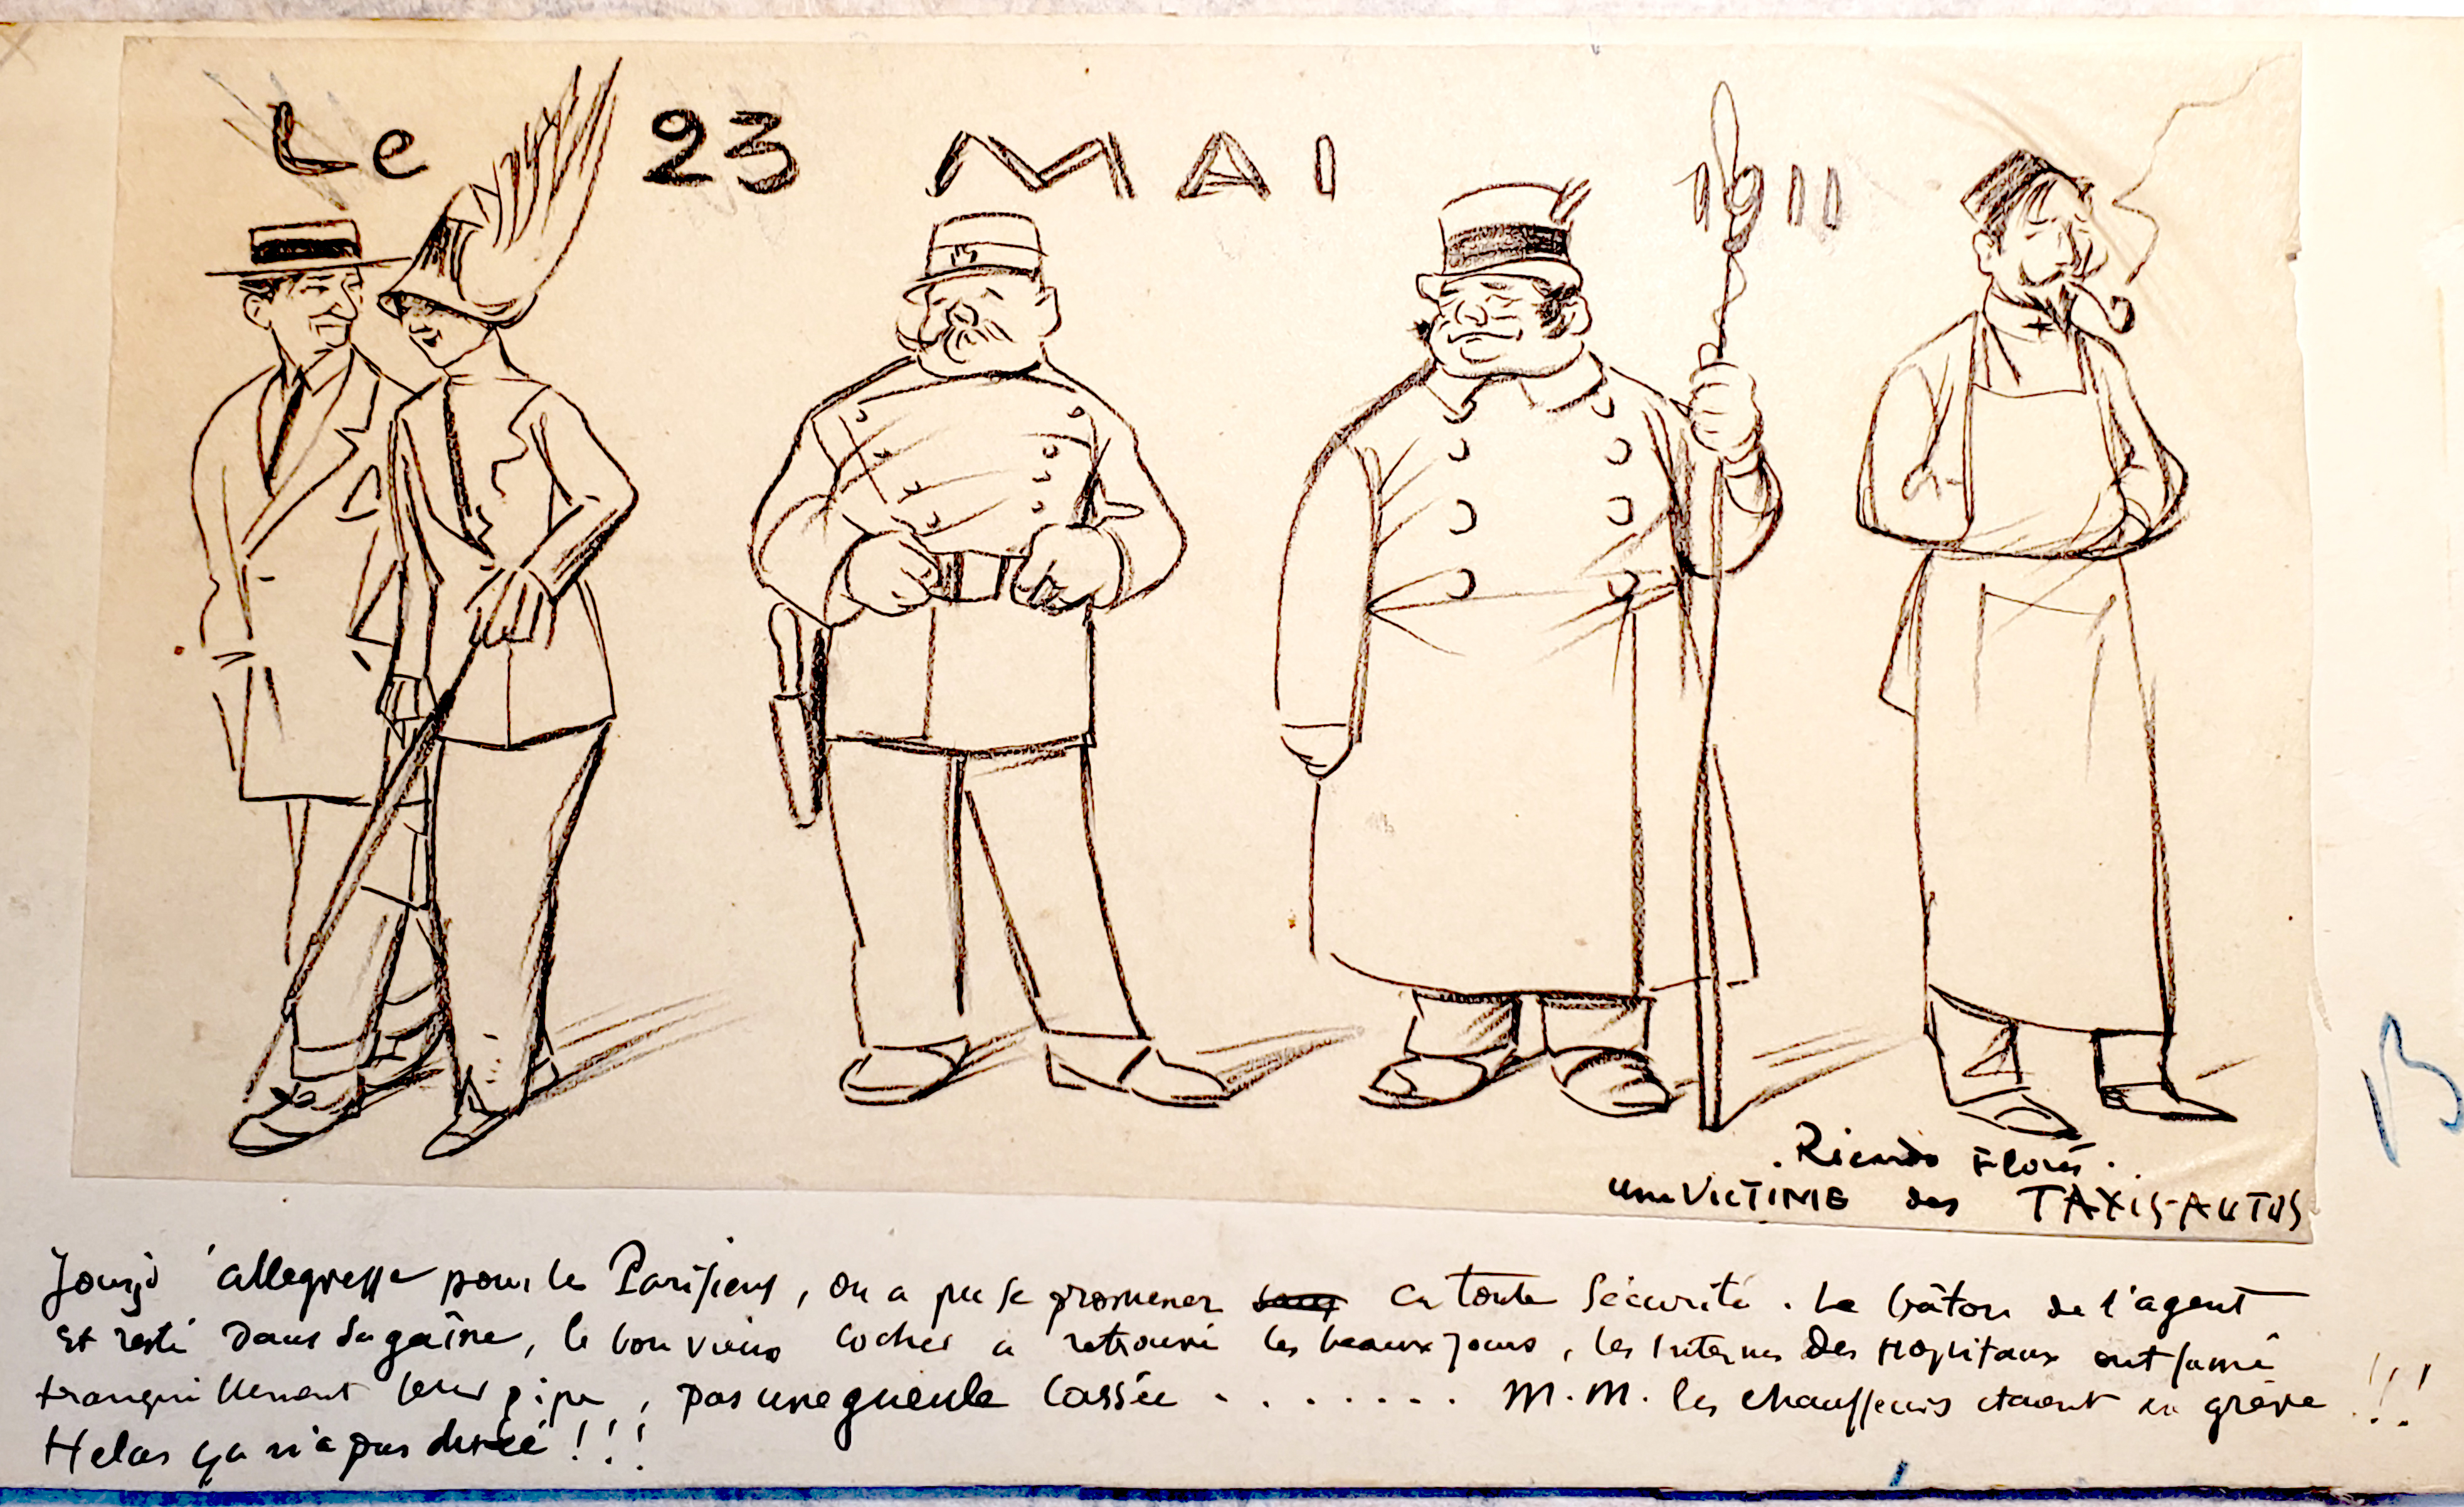 Le 23 MAI 1911
Ricardo Florès.
une VICTIME des TAXIS-AUTOS
Jour d'allegresse pour les Parisiens, on a pu se promener en toute Sécurité. Le bâton de l'agent
est resté dans sa gaîne, le bon vieux cocher a retrouvé les beaux jours, les internes des Hopitaux ont fumé
tranquillement leur pipe, pas une gueule cassée . . . . . . . M.M. les chauffeurs étaient en grève !!!
Helas ça n'a pas duré !!!
B